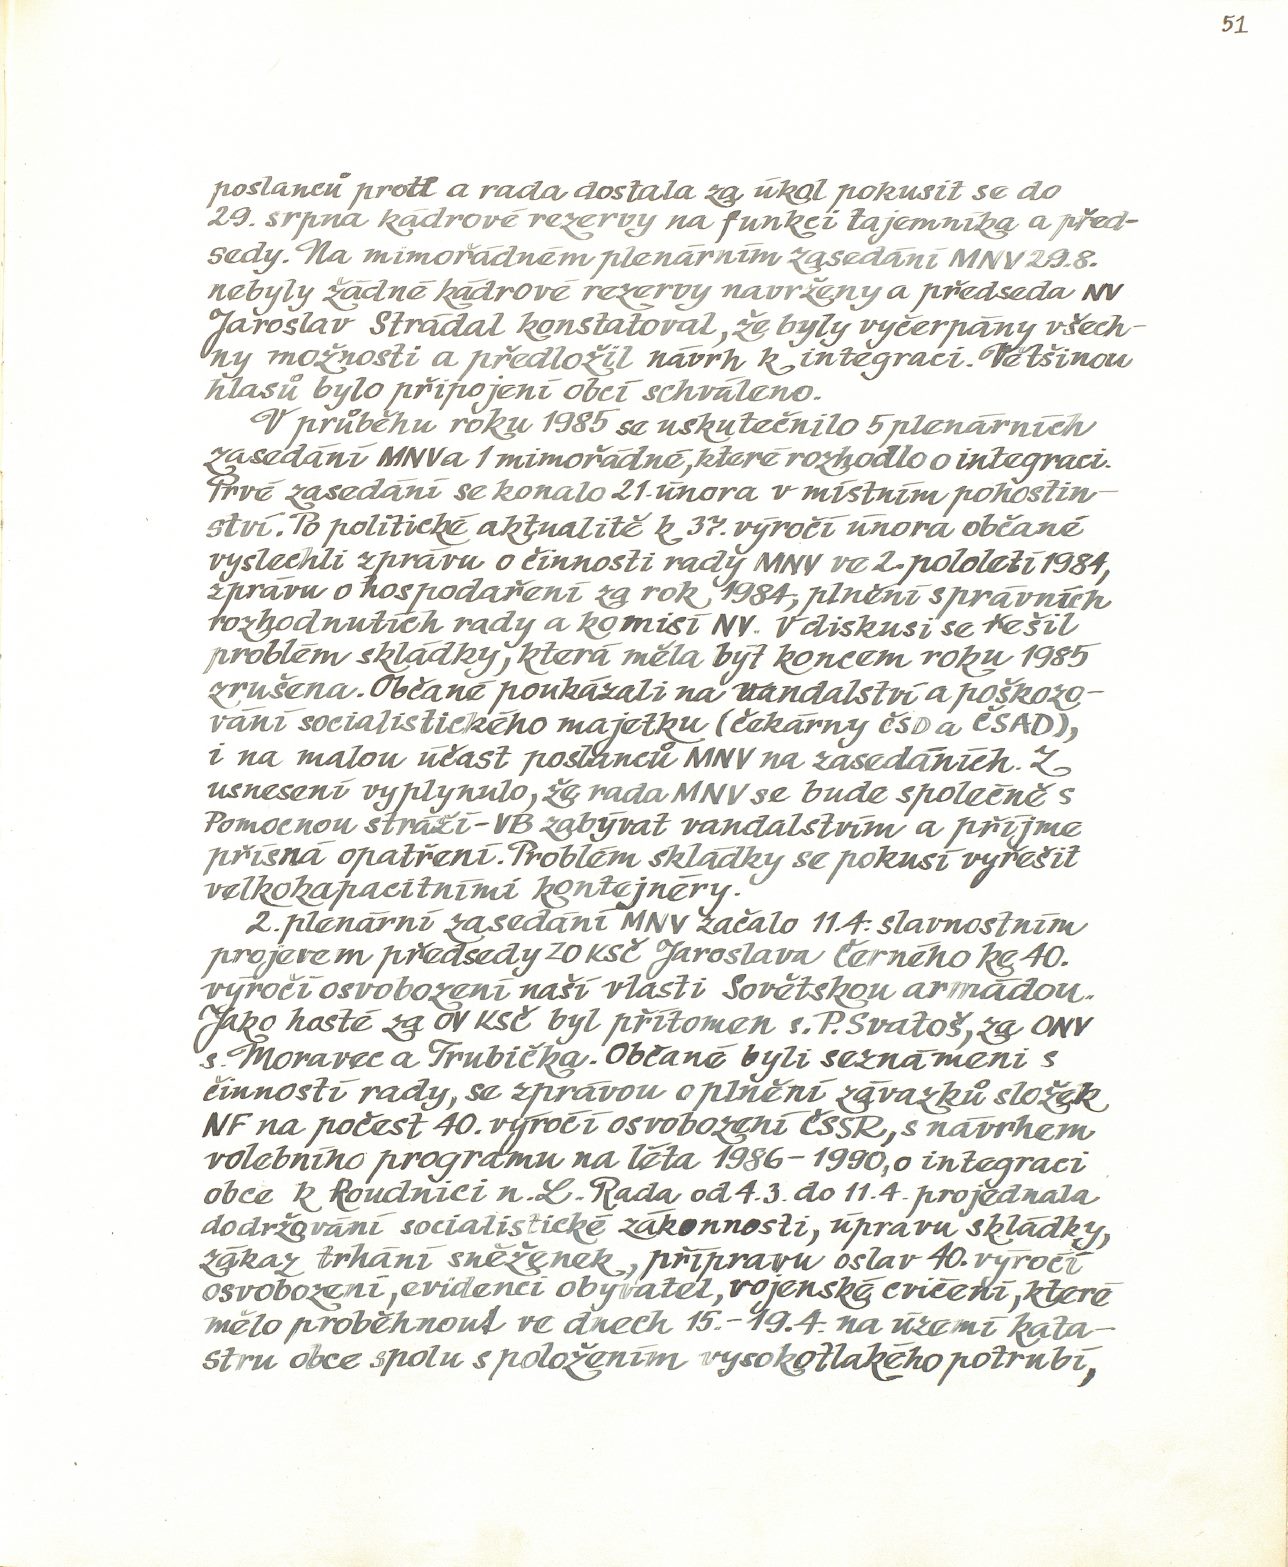 51
poslanců proti a rada dostala za úkol pokusit se do
29. srpna kádrové rezervy na funkci tajemníka a před-
sedy. Na mimořádném plenárním zasedání MNV 29.8.
nebyly žádné kádrové rezervy navrženy a předseda NV
Jaroslav Strádal konstatoval, že byly vyčerpány všech-
ny možnosti a předložil návrh k integraci. Většinou
hlasů bylo připojení obcí schváleno.
V průběhu roku 1985 se uskutečnilo 5 plenárních
zasedání MNV a 1 mimořádné, které rozhodlo o integraci.
Prvé zasedání se konalo 21. února v místním pohostin-
ství. Po politické aktualitě k 37. výročí února občané
vyslechli zprávu o činnosti rady MNV ve 2. pololetí 1984,
zprávu o hospodaření za rok 1984, plnění správních
rozhodnutích rady a komisí NV. V diskusi se řešil
problém skládky, která měla být koncem roku 1985
zrušena. Občané poukázali na vandalství a poškozo-
vání socialistického majetku (čekárny ČSD a ČSAD),
i na malou účast poslanců MNV na zasedáních. Z
usnesení vyplynulo, že rada MNV se bude společně s
Pomocnou stráží-VB zabývat vandalstvím a příjme
přísná opatření. Problém skládky se pokusí vyřešit
velkokapacitními kontejnéry.
2. plenární zasedání MNV začalo 11.4. slavnostním
projevem předsedy ZO KSČ Jaroslava Černého ke 40.
výročí osvobození naší vlasti Sovětskou armádou.
Jako hosté za OV KSČ byl přítomen s. P. Svatoš, za ONV
s. Moravec a Trubička. Občané byli seznámeni s
činností rady, se zprávou o plnění závazků složek
NF na počest 40. výročí osvobození ČSSR, s návrhem
volebního programu na léta 1986-1990, o integraci
obce k Roudnici n. L. Rada od 4.3. do 11.4. projednala
dodržování socialistické zákonnosti, úpravu skládky,
zákaz trhání sněženek, přípravu oslav 40. výročí
osvobození, evidenci obyvatel, vojenské cvičení, které
mělo proběhnout ve dnech 15.-19.4. na území kata-
stru obce spolu s položením vysokotlakého potrubí,